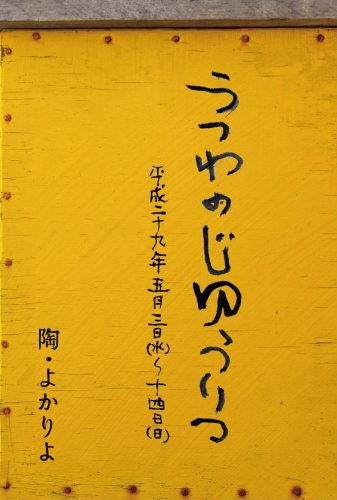 うつわのじゆうりつ
平成二十九年五月三日(水)〜十四日(日)
陶・よかりよ